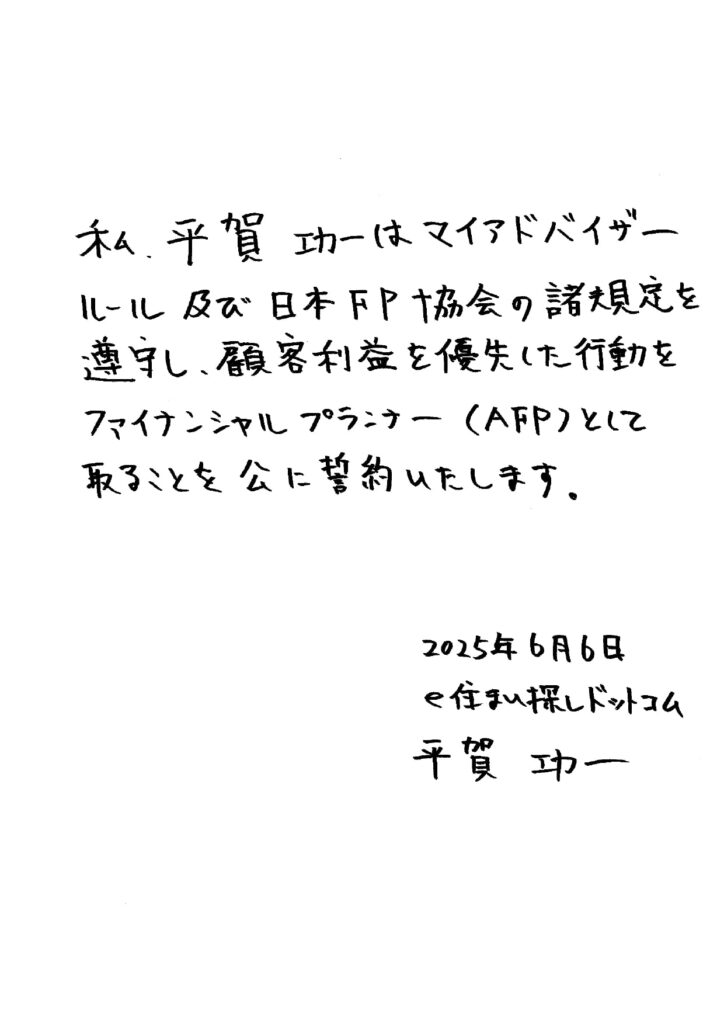 私、平賀 功一はマイアドバイザー
ルール及び日本FP協会の諸規定を
遵守し、顧客利益を優先した行動を
ファイナンシャルプランナー(AFP)として
取ることを公に誓約いたします。
2025年6月6日
e住まい探しドットコム
平賀 功一